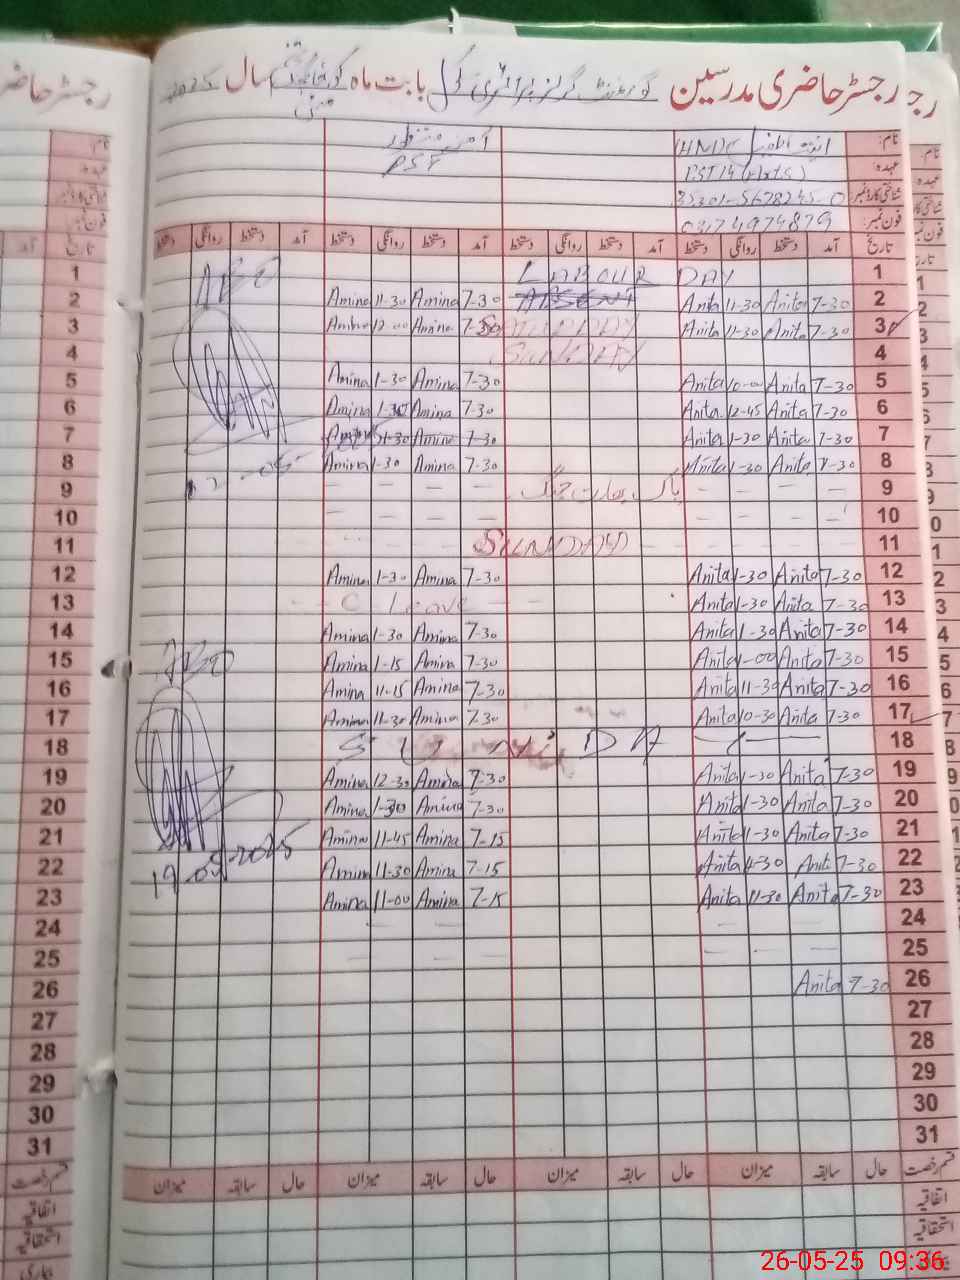 رجسٹر حاضری مدرسین گورنمنٹ گرلز پرائمری سکول بابت ماہ مئی سال 2025
نام:
عہدہ: PST 14
شناختی کارڈ نمبر 35301-5678245-0
فون نمبر: 03174974879
PSF
تاریخ آمد دستخط روانگی دستخط آمد دستخط روانگی دستخط آمد دستخط روانگی دستخط آمد دستخط روانگی دستخط
1 LABOUR DAY
AEO
2 7-30 Anita 11-30 Anita ABSENT 7-30 Amina 11-30 Amina
3 7-30 Anita 11-30 Anita 7-30 Amina 12-00 Amina
4 SUNDAY
5 7-30 Anita 10-00 Anita 7-30 Amina 1-30 Amina
6 7-30 Anita 12-45 Anita 7-30 Amina 1-30 Amina
7 7-30 Anita 1-30 Anita 7-30 Amina 1-30 Amina
8 7-30 Anita 1-30 Anita 7-30 Amina 1-30 Amina
9 پاک بھارت جنگ
10
11 SUNDAY
12 7-30 Anita 1-30 Anita 7-30 Amina 1-30 Amina
13 7-30 Anita 1-30 Anita C Leave
14 7-30 Anita 1-30 Anita 7-30 Amina 1-30 Amina
15 7-30 Anita 1-00 Anita 7-30 Amina 1-15 Amina
AEO
16 7-30 Anita 11-30 Anita 7-30 Amina 11-15 Amina
17 7-30 Anita 10-30 Anita 7-30 Amina 11-30 Amina
18 SUNDAY
19 7-30 Anita 1-30 Anita 7-30 Amina 12-30 Amina
20 7-30 Anita 1-30 Anita 7-30 Amina 1-30 Amina
21 7-30 Anita 11-30 Anita 7-15 Amina 11-45 Amina
22 7-30 Anita 11-30 Anita 7-15 Amina 11-30 Amina
19-05-2025
23 7-30 Anita 11-30 Anita 7-15 Amina 11-00 Amina
24
25
26 7-30 Anita
27
28
29
30
31
قسم رخصت حال سابقہ میزان حال سابقہ میزان حال سابقہ میزان حال سابقہ میزان
اتفاقیہ
استحقاقیہ
بیماری
26-05-25 09:36